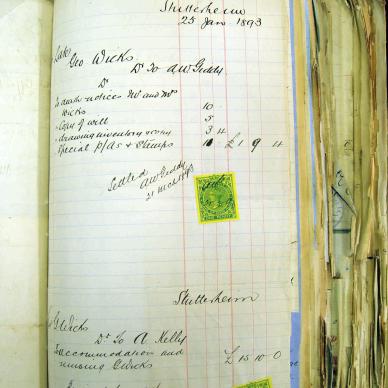 Stutterheim
25 Jan 1893
Late Geo Wicks
Dr To AW Geddy
Dr
To death notices Mr and Mrs
Wicks 10
Copy of will 5
drawing inventory 3 4
Special P/as & Stamps £1 9 4
Settled
AW Geddy
21 March 1893
Stutterheim
G Wicks
Dr To A Kelly
To accommodation and
nursing G Wicks £15 10 0